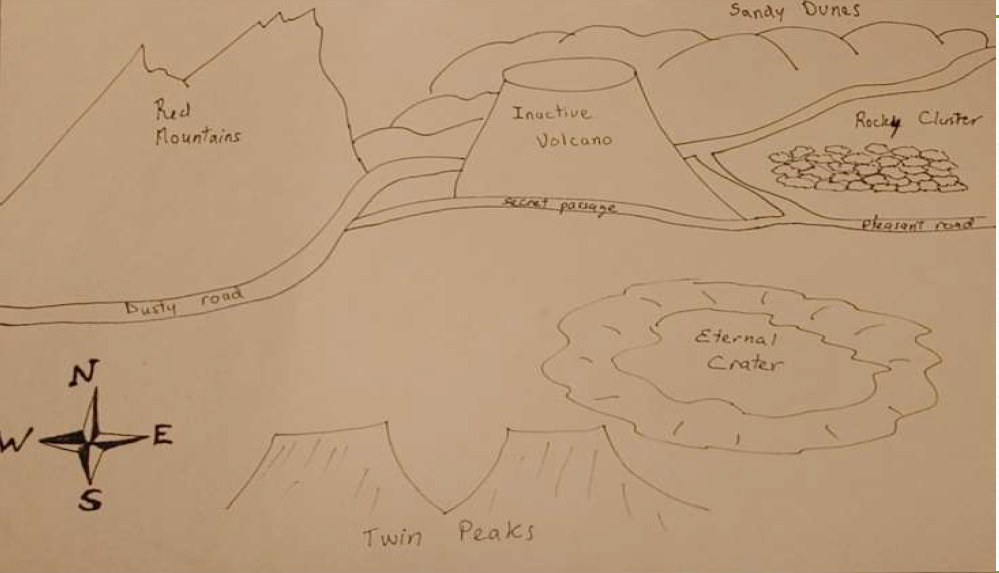 Sandy Dunes
Red
Mountains
Inactive
Volcano
Rocky Cluster
secret passage
pleasant road
Dusty road
Eternal
Crater
N
W
E
S
Twin Peaks